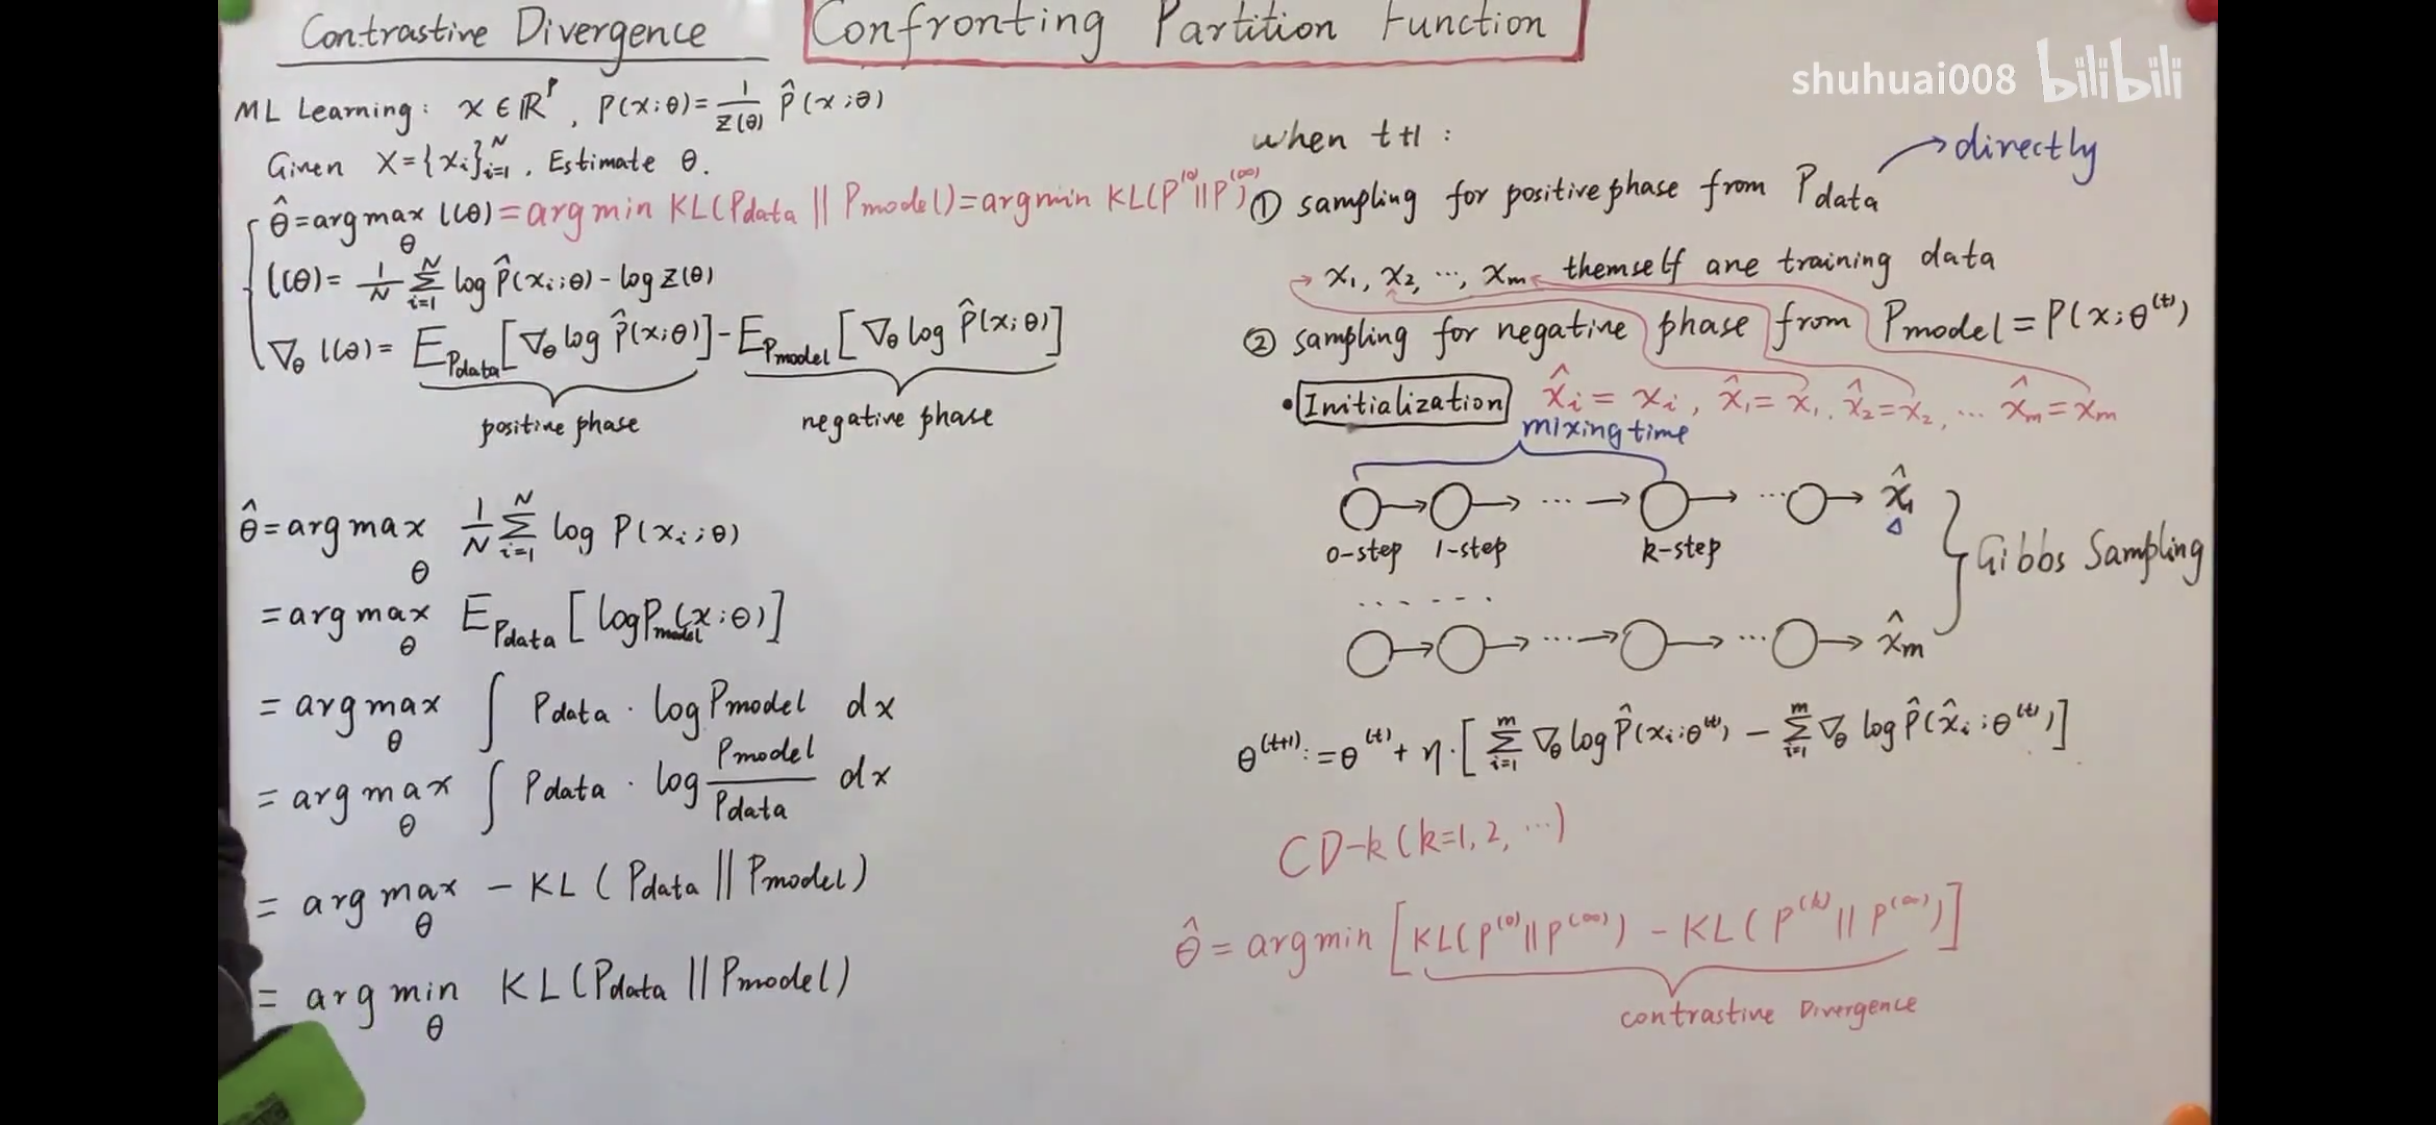 Contrastive Divergence
Confronting Partition Function
shuhuai008 bilibili
ML Learning: x ∈ ℝᵖ, P(x;θ) = 1/Z(θ) P̂(x;θ)
Given X={xᵢ}ᵢ₌₁ᴺ, Estimate θ.
θ̂ = arg max_θ l(θ) = arg min KL(Pdata || Pmodel) = argmin KL(P⁽⁰⁾||P⁽∞⁾)
l(θ) = 1/N Σᵢ₌₁ᴺ log P̂(xᵢ;θ) - log Z(θ)
∇_θ l(θ) = E_Pdata[∇_θ log P̂(x;θ)] - E_Pmodel[∇_θ log P̂(x;θ)]
positive phase
negative phase
θ̂ = arg max_θ 1/N Σᵢ₌₁ᴺ log P(xᵢ;θ)
= arg max_θ E_Pdata [log Pmodel(x;θ)]
= arg max_θ ∫ Pdata · log Pmodel dx
= arg max_θ ∫ Pdata · log Pmodel/Pdata dx
= arg max_θ - KL(Pdata || Pmodel)
= arg min_θ KL(Pdata || Pmodel)
when t+1 :
directly
① sampling for positive phase from Pdata
x₁, x₂, ..., xₘ themself are training data
② sampling for negative phase from Pmodel = P(x;θ⁽ᵗ⁾)
• Initialization x̂ᵢ = xᵢ, x̂₁ = x₁, x̂₂ = x₂, ... x̂ₘ = xₘ
mixing time
... ... x̂₁
0-step 1-step k-step
Gibbs Sampling
......
... ... x̂ₘ
θ⁽ᵗ⁺¹⁾ := θ⁽ᵗ⁾ + η·[Σᵢ₌₁ᵐ ∇_θ log P̂(xᵢ;θ⁽ᵗ⁾) - Σᵢ₌₁ᵐ ∇_θ log P̂(x̂ᵢ;θ⁽ᵗ⁾)]
CD-k (k=1, 2, ...)
θ̂ = argmin [KL(P⁽⁰⁾||P⁽∞⁾) - KL(P⁽ᵏ⁾||P⁽∞⁾)]
contrastive Divergence